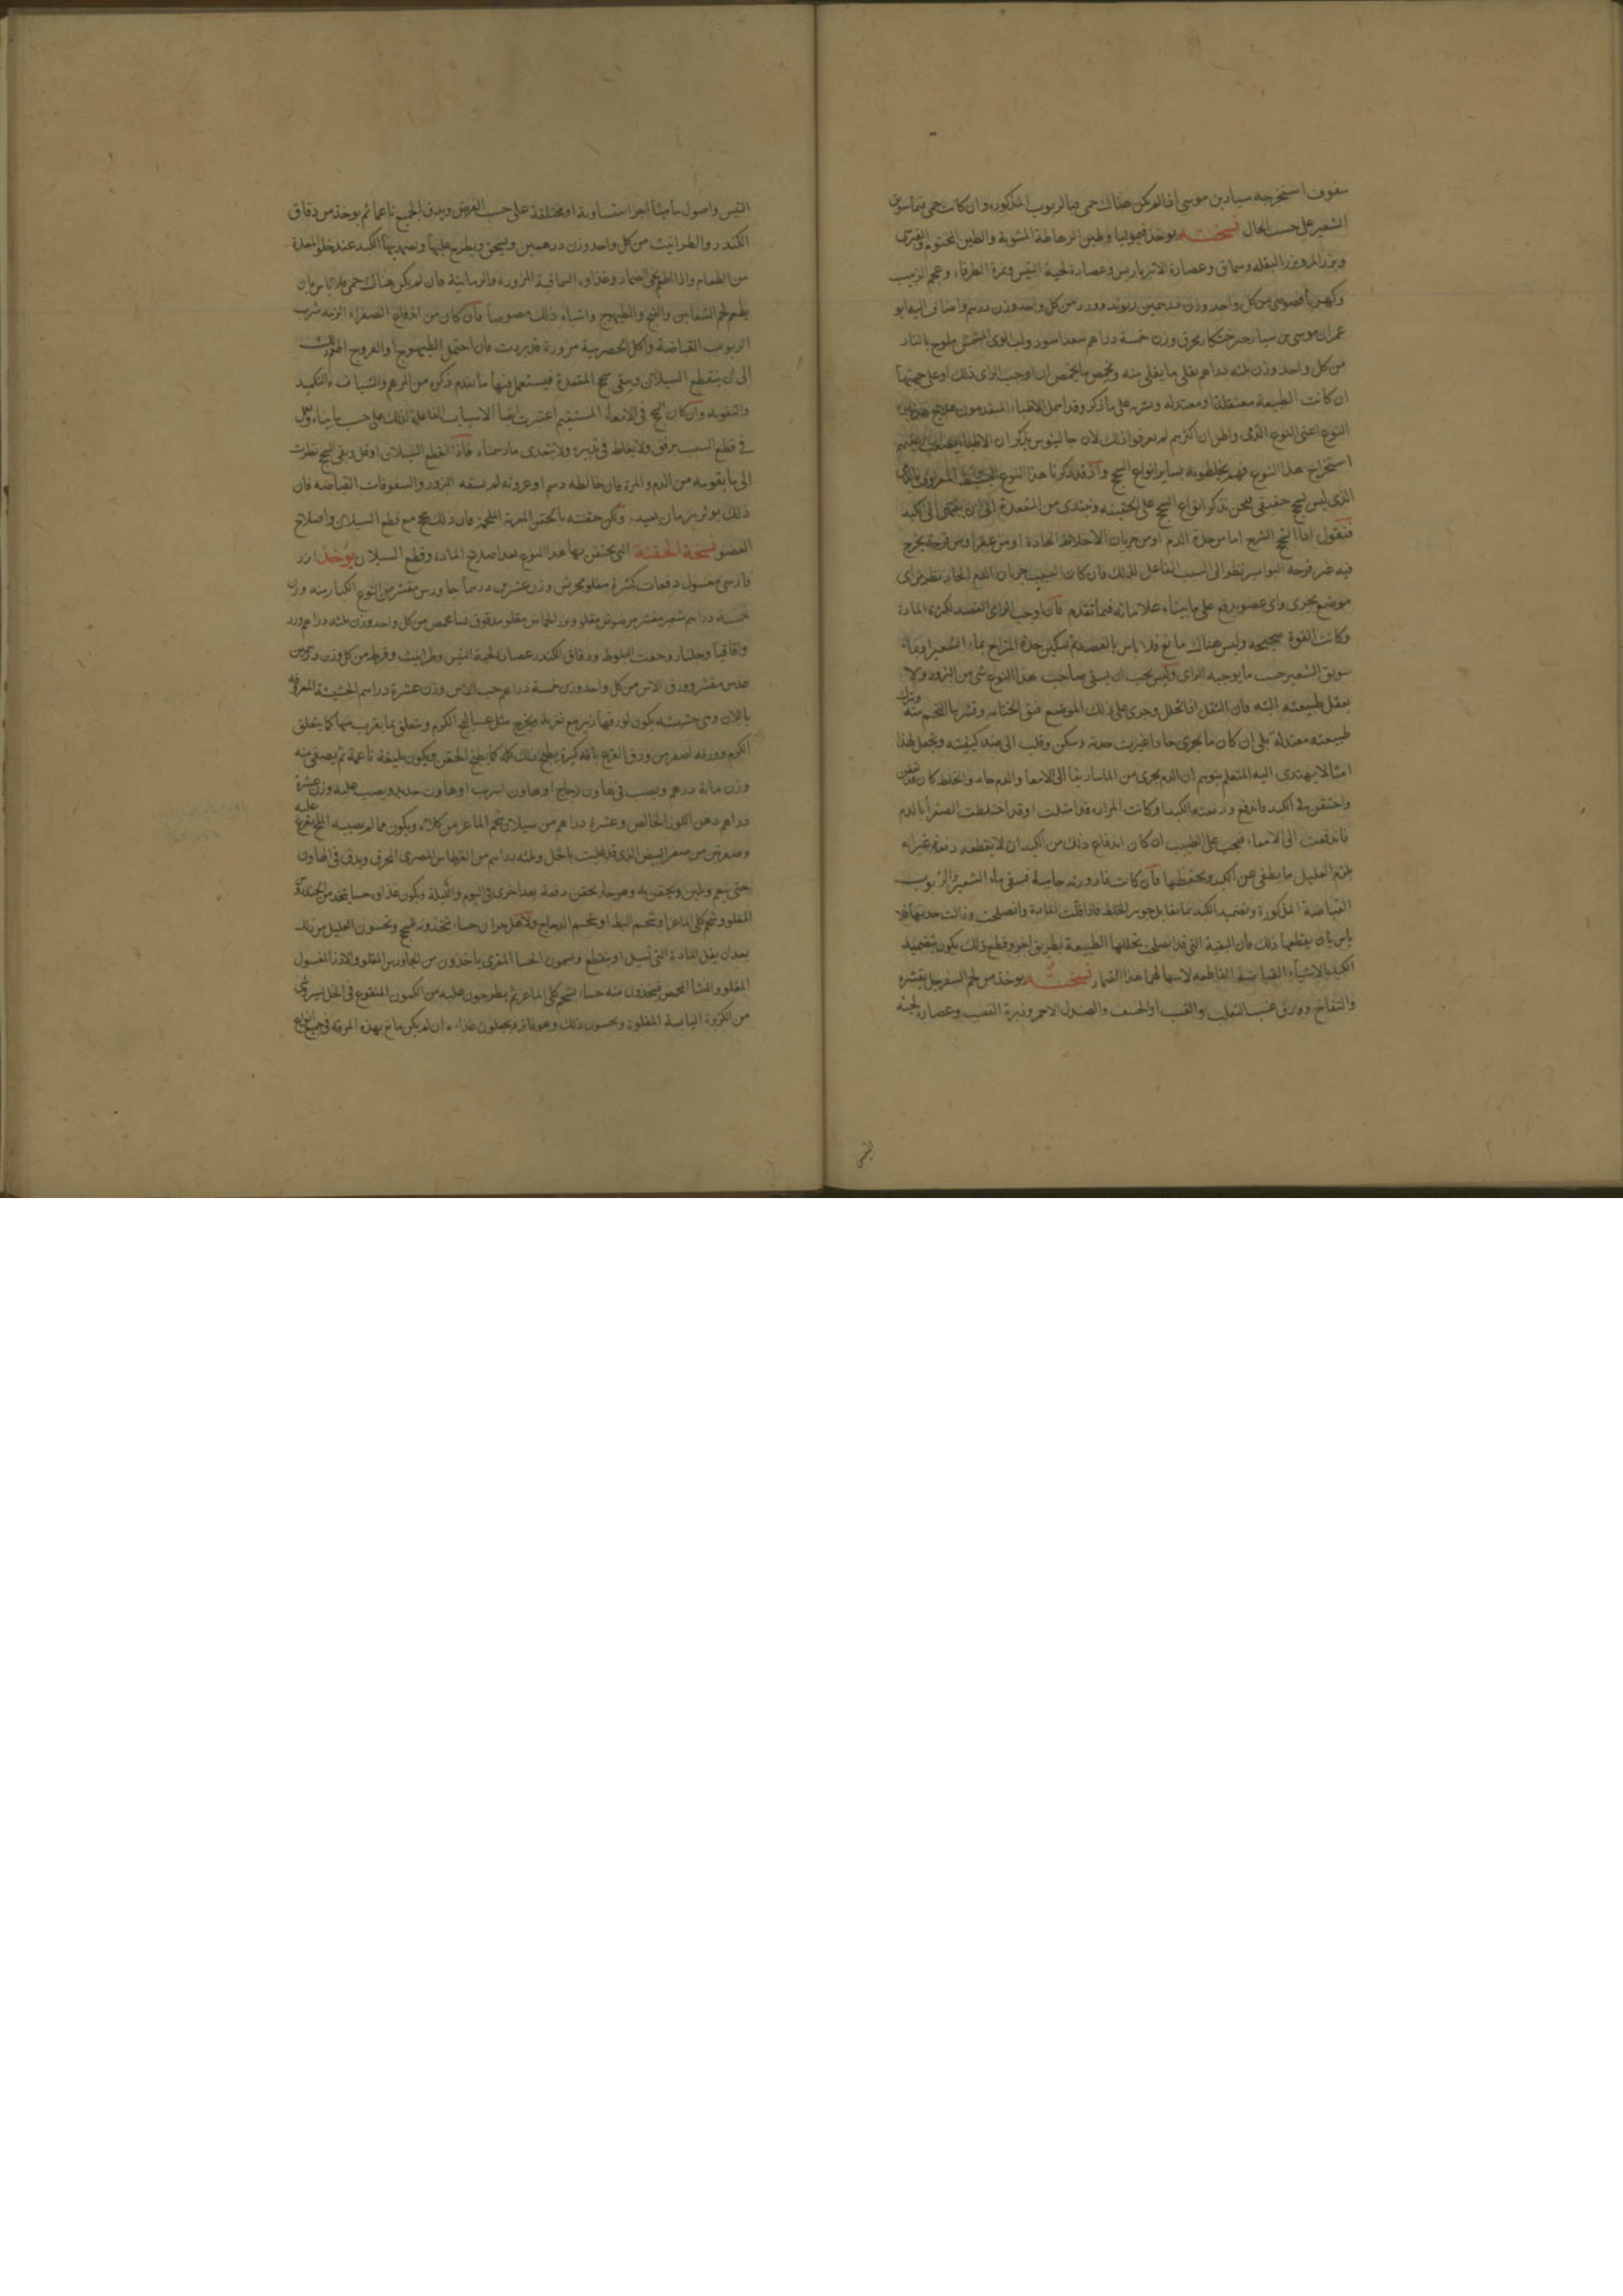 سفوف استخرجه سيار بن موسى اذا لم يكن هناك حمى فبالربوب المذكوره وان كانت حمى فبماء سويق
الشعير على حسب الحال نسخته يوخذ قيموليا وطين الرهاطة المشوية والطين المختوم والقبرسى
وبزر المرو بزر البقله وسماق وعصارة الانبرباريس وعصارة لحية التيس وثمرة الطرفاء وعجم الزبيب
وكهربا من كل واحد وزن درهمين ريوند وورد من كل واحد وزن درهم واضاف اليه ابو
عمران موسى بن سيار محرق وزن خمسة دراهم سعد اسود ولب نوى المشمش ملوح بالنار
من كل واحد وزن ثلثه دراهم يقلى ما يقلى منه ويحمص ما يحمص ان اوجب الراى ذلك او على جهتها
ان كانت الطبيعة معتقلة او معتدله وشربه على ما ذكر وقد اهمل الاطباء المتقدمون علاج هذا
النوع اعنى النوع الدمى واظن ان اكثرهم لم يعرفوا ذلك لان جالينوس يذكر ان الاطباء يصعب عليهم
استخراج هذا النوع فهم يخلطونه بساير انواع السحج واذ قد ذكرنا هذا النوع
الذى ليس بسحج حقيقى فنحن نذكر انواع السحج على الحقيقه ونبتدى من المقعدة الى ان ننتهى الى الكبد
فنقول اذا السحج الشرج اما من حدة الدم او من جريان الاخلاط الحادة او من عقر او من قرحة يخرج
فيه غير قرحه البواسير نظر الى السبب الفاعل لذلك فان كان السبب جريان الدم الحار نظر من اى
موضع يجرى واى عضو يدفع على ما بيناه علاماته فيما تقدم فان اوجب الراى الفصد لكثرة المادة
وكانت القوة صحيحه وليس هناك مانع فلا باس بالفصد ثم تسكين حدة المزاج بماء الشعير او بماء
سويق الشعير حسب ما يوجبه الراى وليس يجب ان يسقى صاحب هذا النوع شى من البزور ولا
يعقل طبيعته البته فان الثقل اذا تخلل وجرى على ذلك الموضع فتق الختام وقشر ما التحم منه وترك
طبيعته معتدلة بلى ان كان ما يجرى حادا غيرت حدته وسكن وقلب الى ضد كيفيته ويجعل لهذا
امثالا يهتدى اليه المتعلم يتوهم ان الدم يجرى من الماساريقا الى الامعا والدم حاد والخلط كان قد تعفن
واحتقن فى الكبد فاندفع ودفعته الكبد او كانت المرار قد امتلت او قد اختلطت الصفرا بالدم
فاندفعت الى الامعاء فيجب على الطبيب ان كان اندفاع ذلك من الكبد ان لا يقطعه دفعة غير انه
يلزم العليل ما يطفى عن الكبد ويحفظها فان كانت قارورته حامية فسقى ماء الشعير بالربوب
القباضة المذكورة وتضميد الكبد بما يقابل جوهر الخلط فاذا قلت المادة وانصلحت وزالت حدتها فلا
باس بان يقطعها ذلك فان البقية التى قد انصلحت تحللها الطبيعة بطريق اخر وقطع ذلك يكون بتضميد
الكبد بالاشياء القباضة القاطعه لاسيما لهما هذا الضماد نسخته يوخذ من لحم السفرجل بقشره
والتفاح وورق عنب الثعلب والقسب او الخشف والصندل الاحمر وذريرة القصب وعصارة لحيه
التيس
التيس واصول مامیثا اجزا متساوية او مختلفة على حسب الغرض ويدق الجميع ناعما ثم يوخذ من دقاق
الكندر والطراثيث من كل واحد وزن درهمين ويسحق ويطرح عليها ويضمد بها الكبد عند خلو المعدة
من الطعام واذا اطعم نحى الضماد وغذاوه السماقية المزورة والرمانية فان لم يكن هناك حمى فلا باس بان
يطعم لحم الشفانين والقبج والطيهوج واشباه ذلك مصوصا فان كان من اندفاع الصفراء الزمه شرب
الربوب القباضة واكل الحصرمية مزورة قد بردت فان احتمل الطيهوج او الفروج اطعم ذلك
الى ان ينقطع السيلان ويبقى سحج المقعدة فيستعمل فيها ما تقدم ذكره من المرهم والشياف والتكميد
والتقويه وان كان السحج فى الامعاء المستقيم اعتبرت ايضا الاسباب الفاعلة لذلك على حسب ما بيناه وتعمل
فى قطع السبب برفق ولا يغلط فى تدبيره ولا يتعدى ما رسمناه فاذا انقطع السيلان او قل وبقى السحج نظرت
الى ما يقومه من الدم والمرة فان خالطه دسم او عروته لم تسقه البزور والسفوفات القباضه فان
ذلك يوثر بزمان بعيد ولكن حقنته بالحقن المغرية الملحمة فان ذلك ينجح مع قطع السيلان واصلاح
العضو نسخة الحقنة التى يحقن بها هذا النوع بعد اصلاح المادة وقطع السيلان يوخذ ارز
فارسى مغسول دفعات كثيرة مقلو مجرش وزن عشرين درهما جاورس مقشر من النوع الكبار منه وزن
خمسة دراهم شعير مقشر مرضوض مقلو وبزر الحماض مقلو مدقوق نشا محمص من كل واحد وزن ثلثه دراهم ورد
واقاقيا وجلنار وجفت البلوط ودقاق الكندر عصارة لحية التيس وطراثيث وقرط من كل وزن درهمين
عدس مقشر وورق الاس من كل واحد وزن خمسة دراهم حب الاس وزن عشرة دراهم الحشيشة المعروفه
باللان وهى حشيشه يكون لورقها زئبر مع تغريه ويخرج مثل عساليج الكرم ويتعلق بما يقرب منها كما يتعلق
الكرم وورقه اصغر من ورق القرع باقه كبيرة يطبخ ذلك كله كما يطبخ الحقن ويكون طبيخه ناعمة ثم يصفى منه
وزن مائة درهم ويصب فى هاون زجاج او هاون اسرب او هاون حديد ويصب عليه وزن عشرة
دراهم دهن اللوز الخالص وعشرة دراهم من سيلان شحم الماعز من كلاه ويكون مما لم يصبه الملح يفرغ عليه
وصفرتين من صفر البيض الذى قد طبخت بالخل وثلثه دراهم من القرطاس المصرى المحرق ويدق فى الهاون
حتى ينعم ويلين ويحقن به وهو حار يحقن دفعة بعد اخرى فى اليوم والليلة ويكون غذاوه حسا يتخذ من
المقلو وشحم كلى الماعز او شحم البط او شحم الدجاج ولاهل حران حساء يتخذونه للسحج ويحسون العليل من ذلك
بعد ان يقل المادة التى تسيل او ينقطع ويسمون الحسا المغرى ياخذون من الجاورس المقلو والارز المغسول
المقلو والنشا المحمص فيتخذون منه حساء بشحم كلى الماعز ثم يطرحون عليه من الكمون المنقوع فى الخل يسير وشى
من الكزبرة اليابسة المقلوة ويحسون ذلك وهو فاتر ويجعلون غذاءه ان لم يكن مانع بهذه المرقه فى جميع انواع